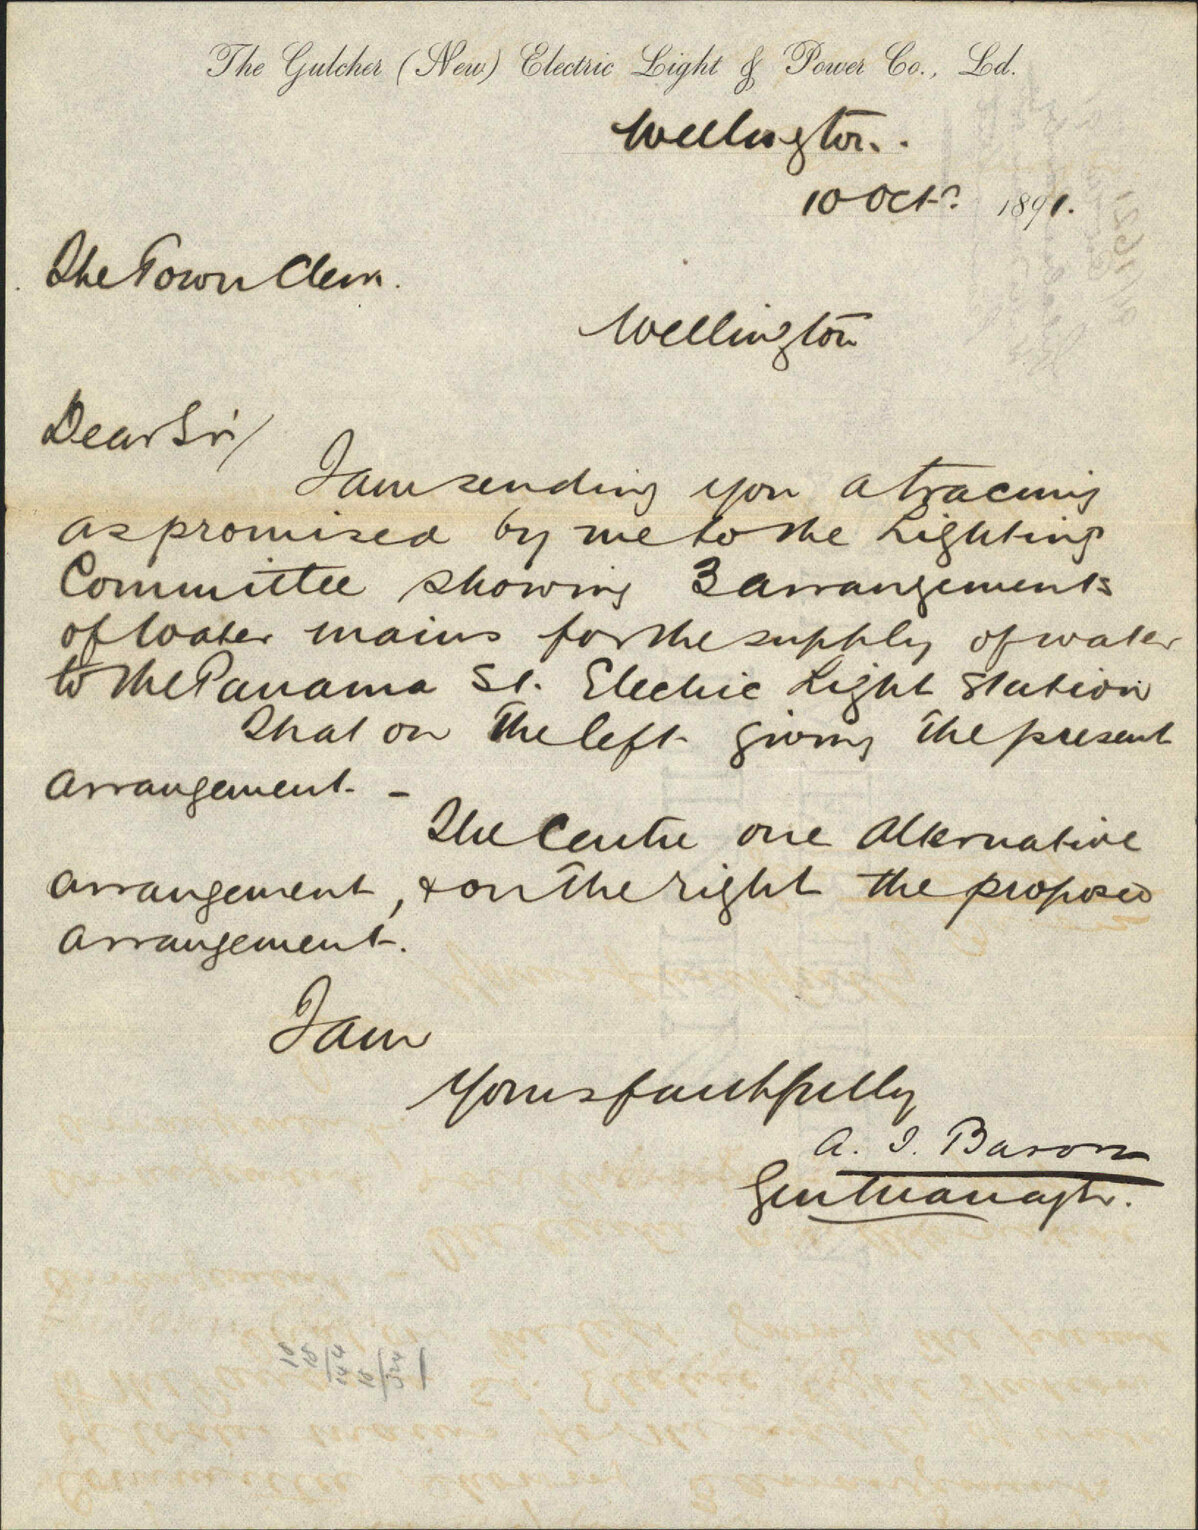 The Gulcher (New) Electric Light & Power Co., Ld.
Wellington.
10 Octr. 1891.
The Town Clerk.
Wellington
Dear Sir/
I am sending you a tracing
as promised by me to the Lighting
Committee showing 3 arrangements
of water mains for the supply of water
to the Panama St. Electric Light Station
That on the left giving the present
arrangement. -
The Centre one alternative
arrangement, & on the right the proposed
arrangement.
I am
Yours faithfully
A. I. Baron
Gen Manager.